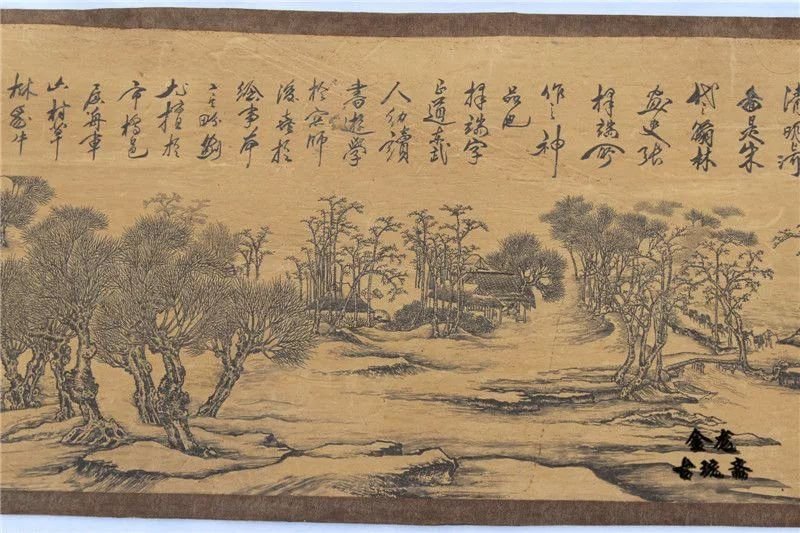 清明上河
圖是宋
代翰林
畫史張
擇端所
作之神
品也
擇端字
正道東武
人幼讀
書遊學
於京師
後喜於
繪事本
工
尤擅於
市橋邑
居舟車
山村草
林
金龙
古玩斋